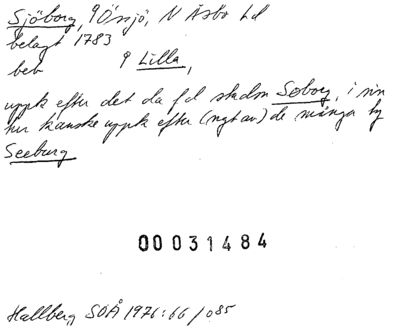 Sjöborg, 9 Össjö, N Åsbo hd
belagt 1783
beb 9 Lilla,
uppk efter det da f d staden Søborg, i sin
tur kanske uppk efter (ngt av) de många ty
Seeburg
00031484
Hallberg, SOÅ 1976:66/085